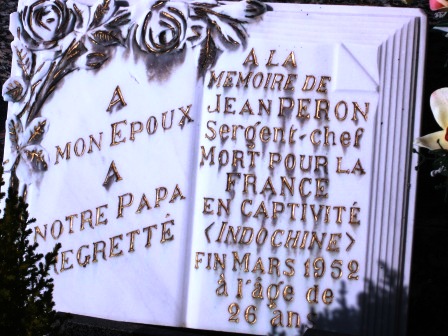 A
MON EPOUX
A
NOTRE PAPA
REGRETTÉ
A LA
MEMOIRE DE
JEAN PERON
Sergent-chef
MORT POUR LA
FRANCE
EN CAPTIVITÉ
<INDOCHINE>
FIN MARS 1952
à l'âge de
26 ans